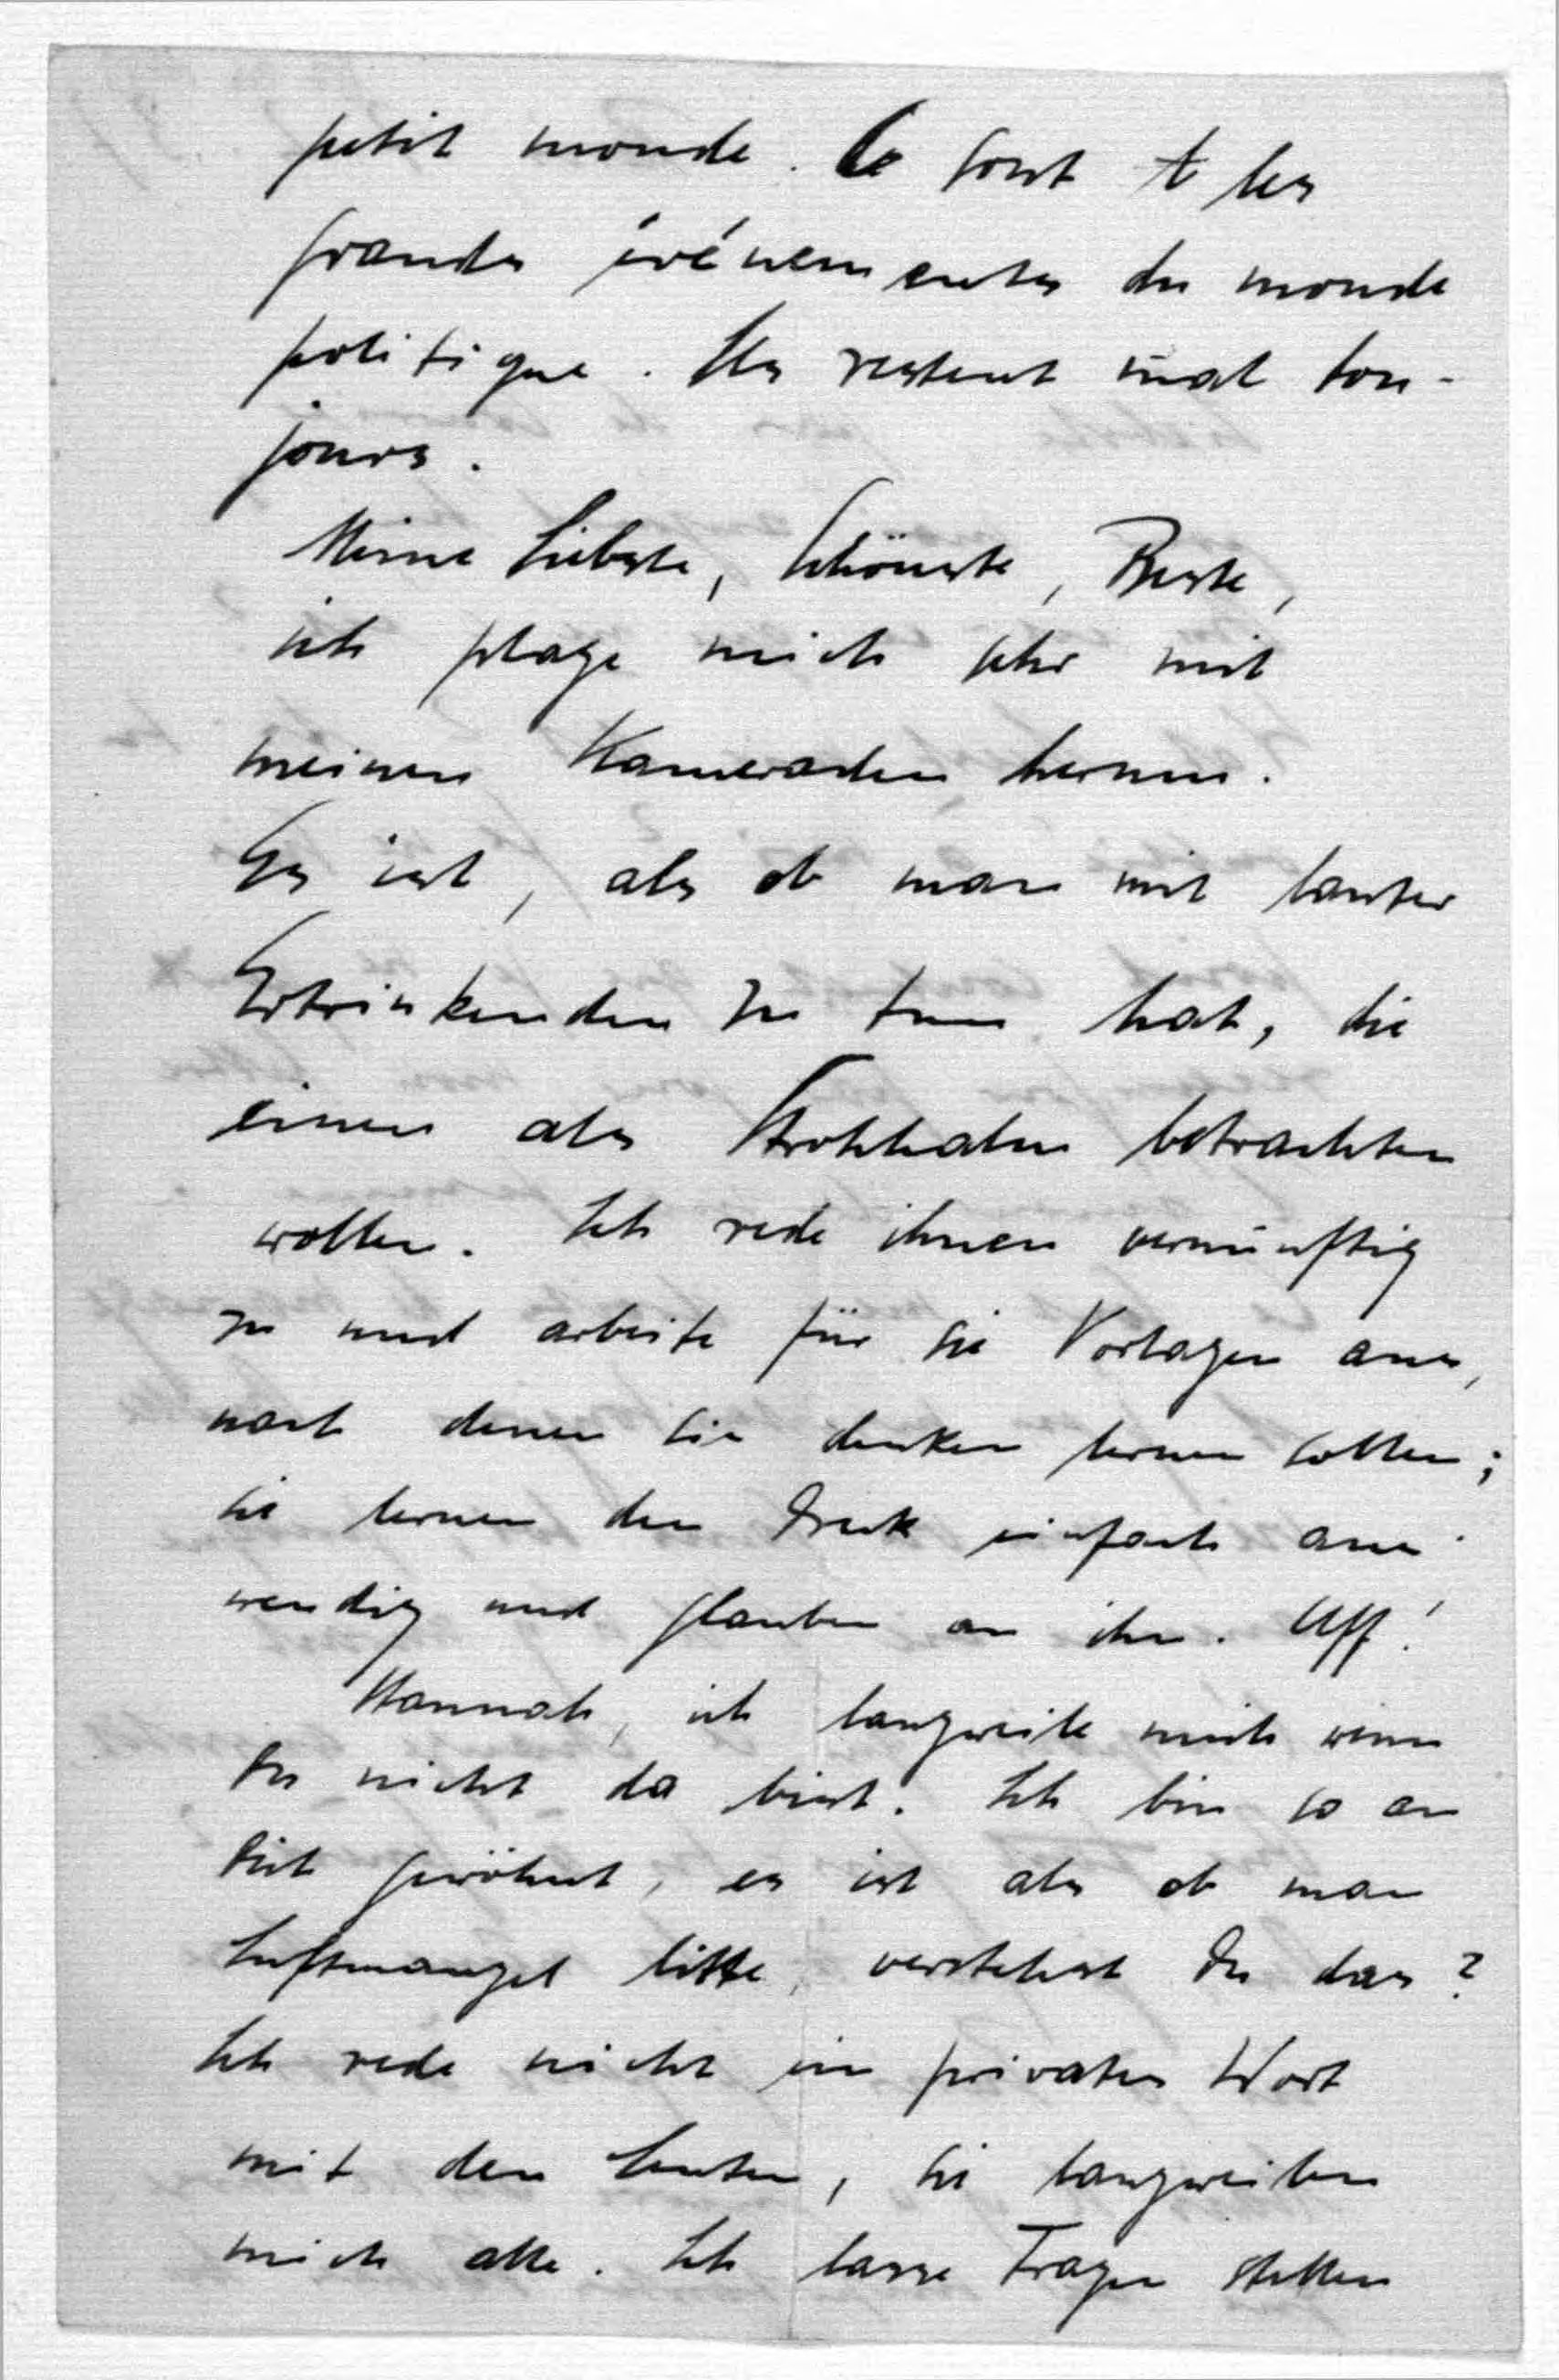 petit monde. Ce sont les
grandes événementes du monde
politique. Ils restent mal tou-
jours.
Meine Liebste, Schönste, Beste,
ich plage mich sehr mit
meinen Kameraden herum.
Es ist, als ob man mit lauter
Ertrinkenden zu tun hat, die
einen als Strohhalm betrachten
wollen. Ich rede ihnen vernünftig
zu und arbeite für sie Vorlagen aus,
nach denen sie denken lernen sollen;
sie lernen den Dreck einfach aus-
wendig und glauben an ihn. Uff!
Hannah, ich langweile mich wenn
Du nicht da bist. Ich bin so an
Dich gewöhnt, es ist als ob man
Luftmangel litte, verstehst Du das?
Ich rede nicht ein privates Wort
mit den Leuten, sie langweilen
mich alle. Ich lasse Fragen stellen